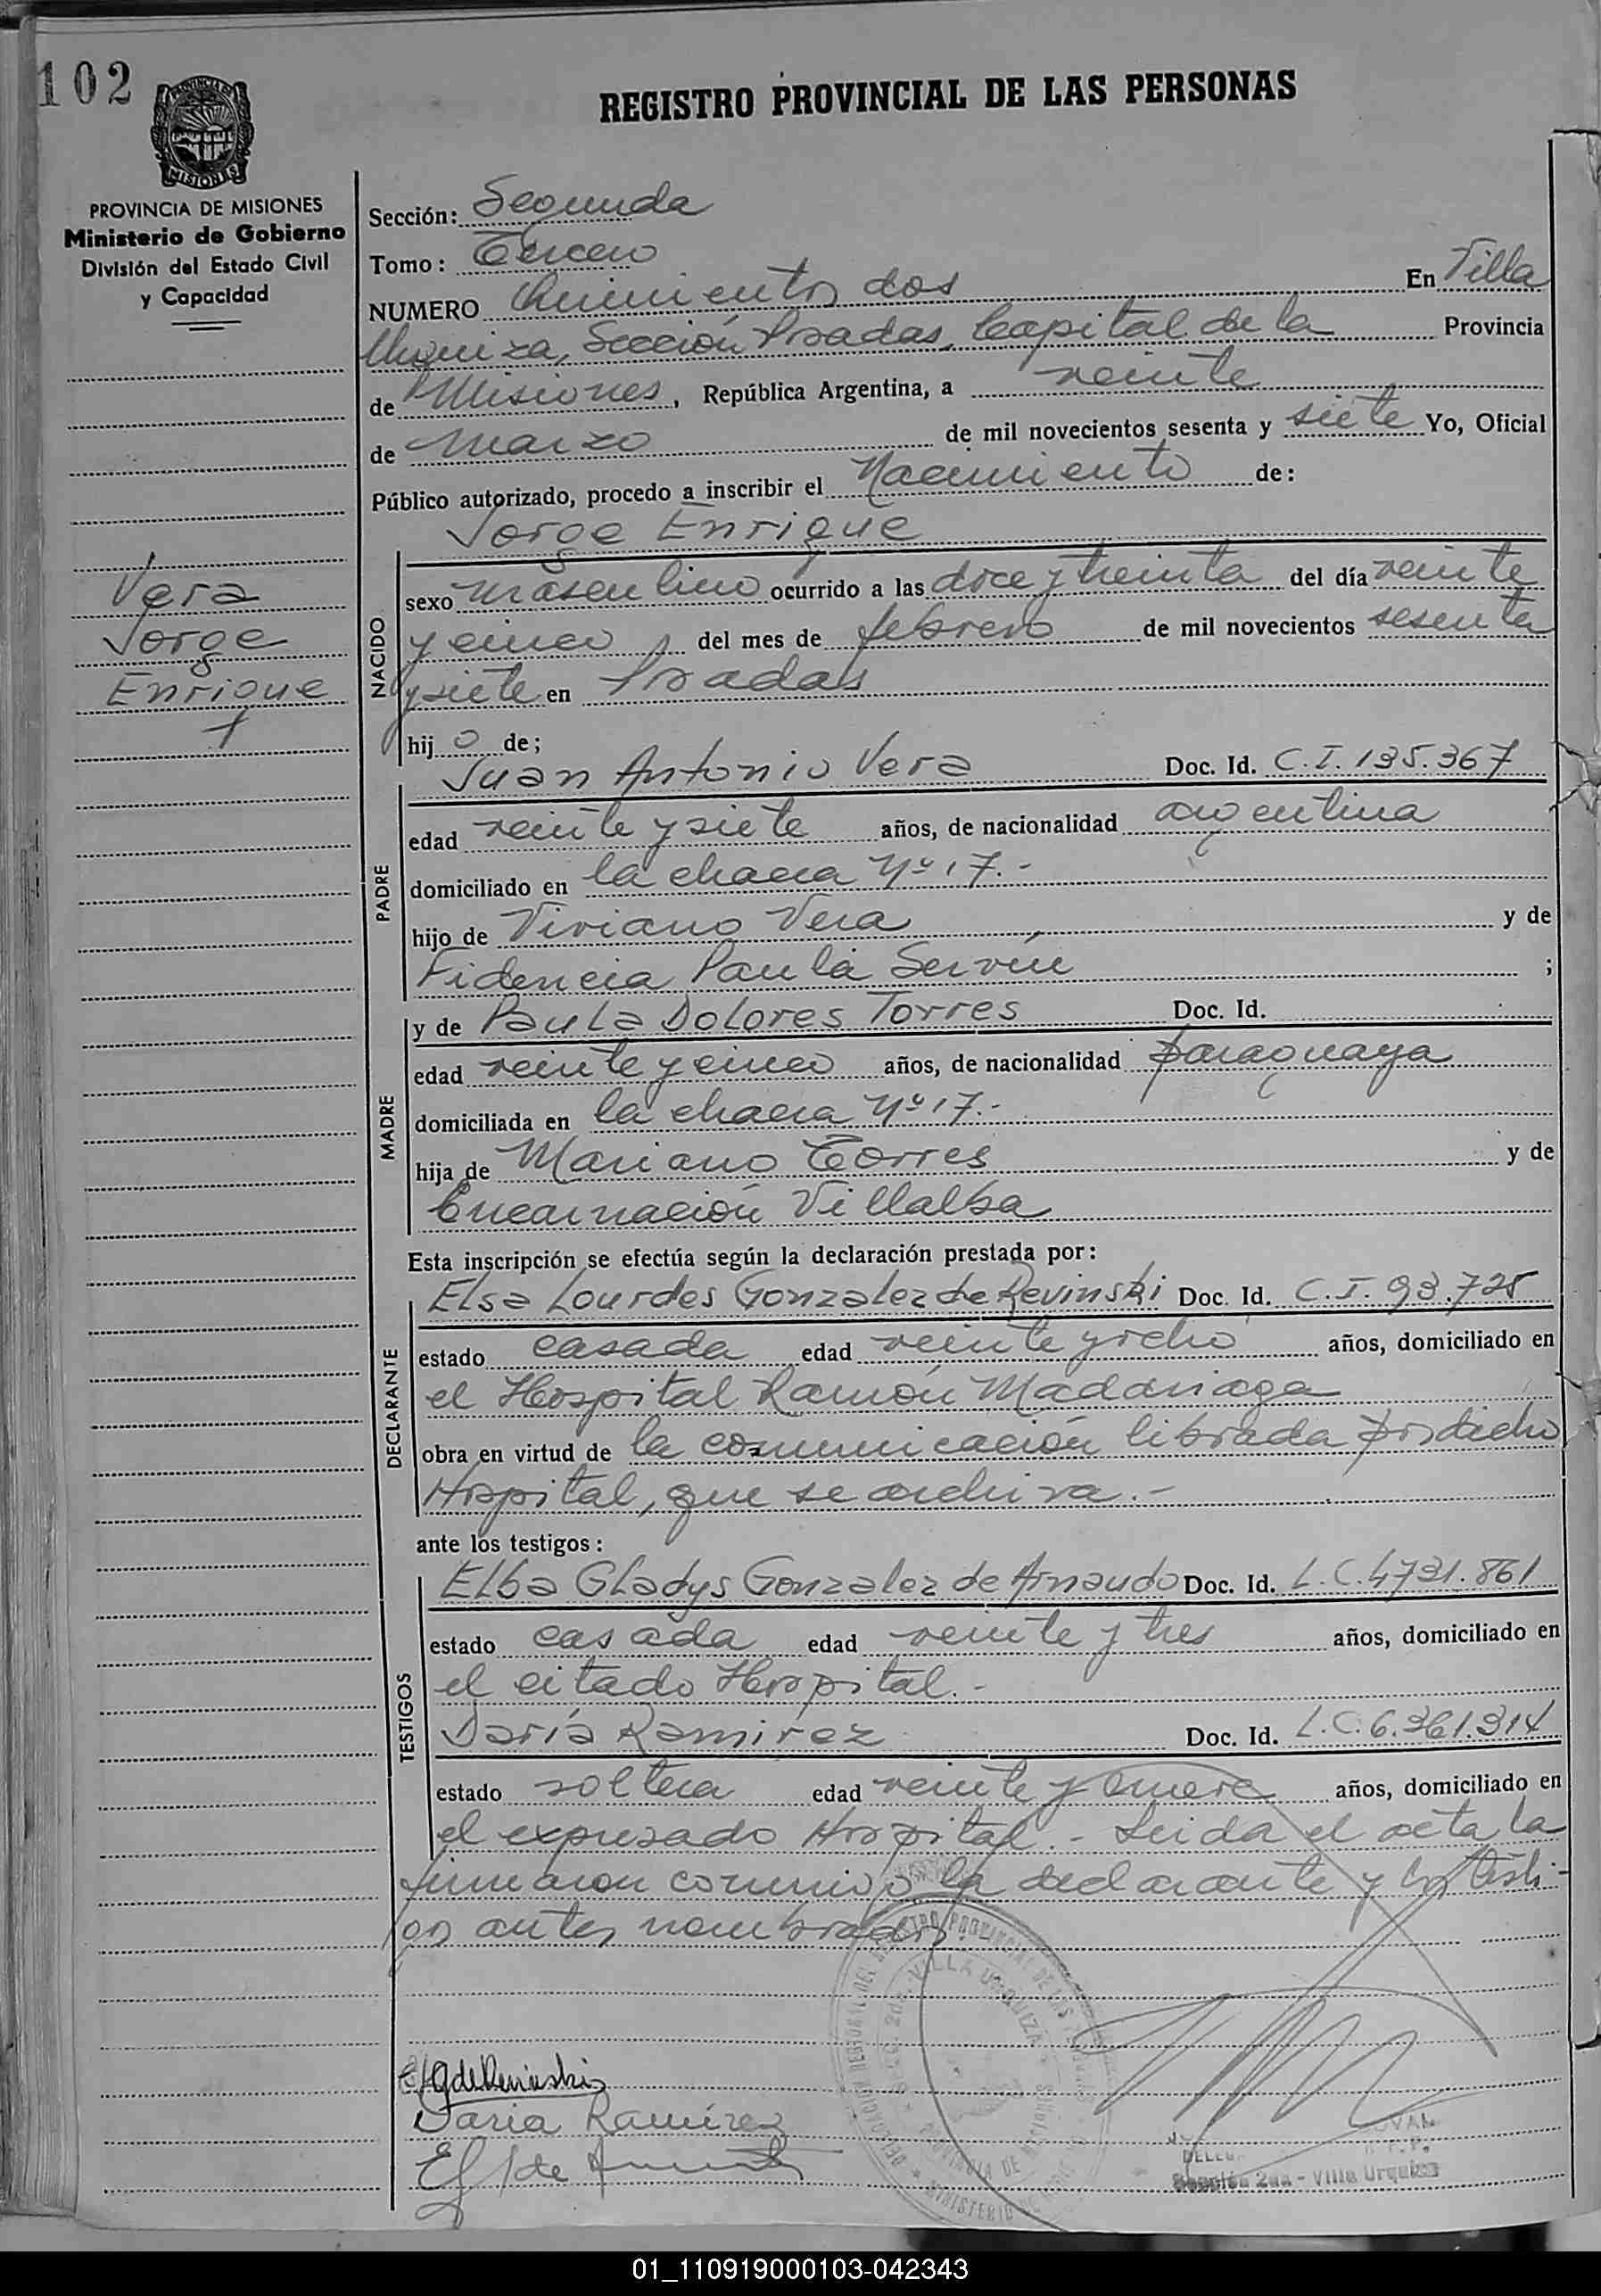 102
REGISTRO PROVINCIAL DE LAS PERSONAS
MISIONES
PROVINCIA DE MISIONES
Ministerio de Gobierno
División del Estado Civil
y Capacidad
Vera
Jorge
Enrique
Sección: Segunda
Tomo: Tercero
NUMERO Quinientos dos En Villa
Urquiza, Sección Posadas, Capital de la Provincia
de Misiones, República Argentina, a veinte
de marzo de mil novecientos sesenta y siete Yo, Oficial
Público autorizado, procedo a inscribir el Nacimiento de:
Jorge Enrique
NACIDO
sexo masculino ocurrido a las doce y treinta del día veinte
y cinco del mes de febrero de mil novecientos sesenta
y siete en Posadas
hijo de;
Juan Antonio Vera Doc. Id. C.I. 135.367
PADRE
edad veinte y siete años, de nacionalidad argentina
domiciliado en la chacra Nº 17.-
hijo de Viviano Vera y de
Fidencia Paula Servín ;
y de Paula Dolores Torres Doc. Id.
MADRE
edad veinte y cinco años, de nacionalidad paraguaya
domiciliada en la chacra Nº 17.-
hija de Mariano Torres y de
Encarnación Villalba
Esta inscripción se efectúa según la declaración prestada por:
Elsa Lourdes Gonzalez de Revinski Doc. Id. C.I. 93.725
DECLARANTE
estado casada edad veinte y ocho años, domiciliado en
el Hospital Ramón Madariaga
obra en virtud de la comunicación librada por dicho
Hospital, que se archiva.-
ante los testigos:
Elba Gladys Gonzalez de Arnaudo Doc. Id. L.C. 4731.861
TESTIGOS
estado casada edad veinte y tres años, domiciliado en
el citado Hospital.-
Daría Ramírez Doc. Id. L.C. 6.361.314
estado soltera edad veinte y nueve años, domiciliado en
el expresado Hospital.- Leida el acta la
firmaron conmigo la declarante y los testi-
gos antes nombrados.
VILLA URQUIZA
PROVINCIA DE MISIONES
E L G de Revinski
Daria Ramírez
Sección 2da - Villa Urquiza
01_110919000103-042343